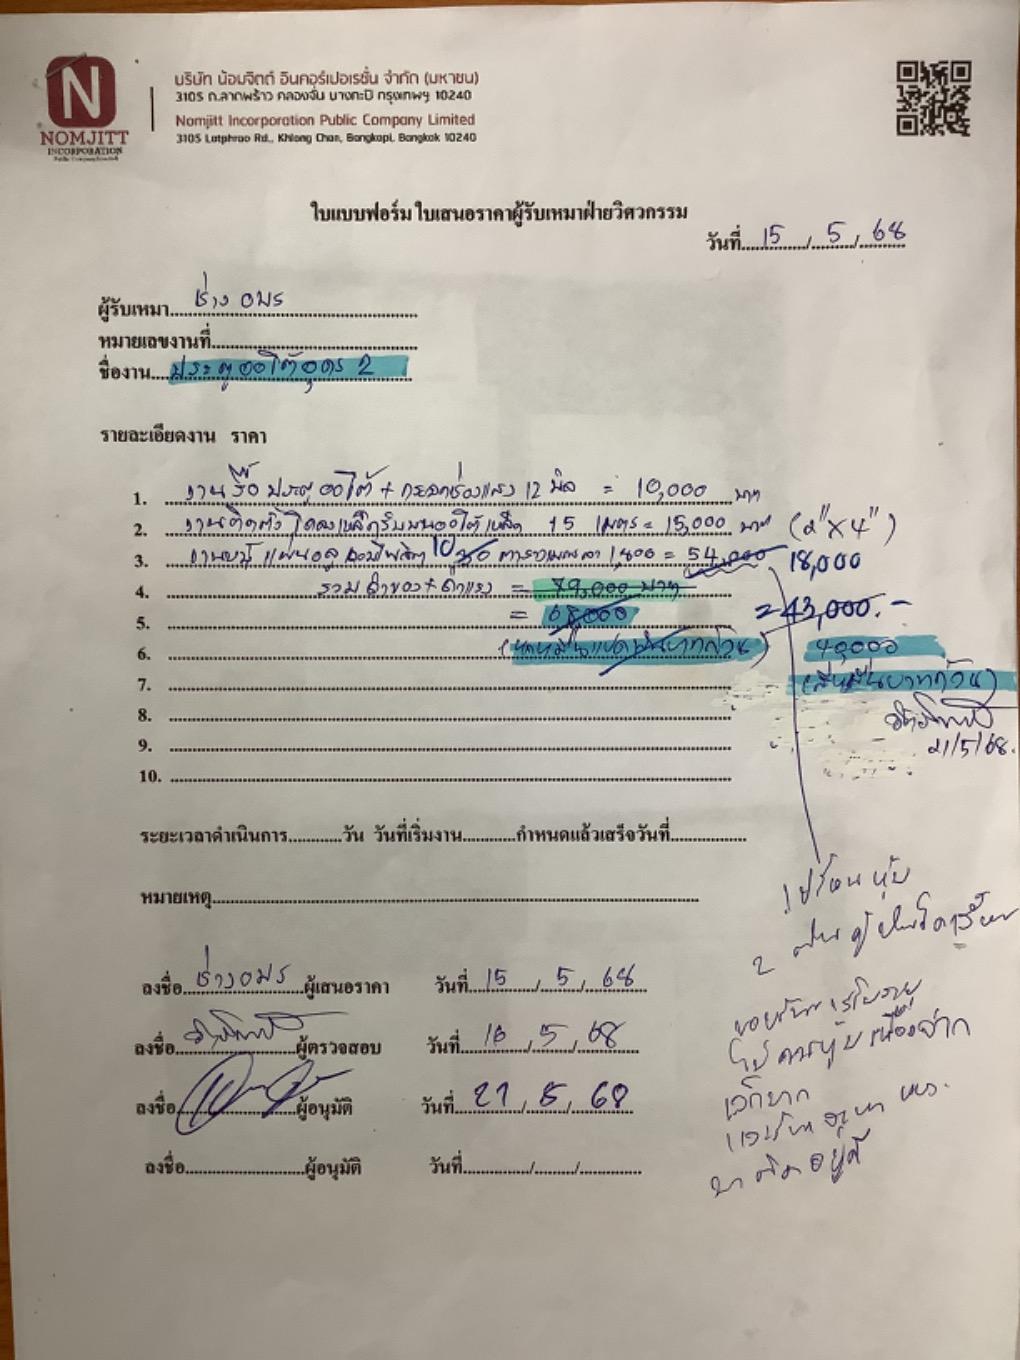 N
NOMJITT
INCORPORATION
Public Company Limited
บริษัท น้อมจิตต์ อินคอร์เปอเรชั่น จำกัด (มหาชน)
3105 ถ.ลาดพร้าว คลองจั่น บางกะปิ กรุงเทพฯ 10240
Nomjitt Incorporation Public Company Limited
3105 Latphrao Rd., Khlong Chan, Bangkapi, Bangkok 10240
ใบแบบฟอร์ม ใบเสนอราคาผู้รับเหมาฝ่ายวิศวกรรม
วันที่ 15 / 5 / 68
ผู้รับเหมา ช่าง อมร
หมายเลขงานที่
ชื่องาน ประตูออโต้อุดร 2
รายละเอียดงาน ราคา
1. งานรื้อ ประตู ออโต้ + กระจกช่องแสง 12 มิล = 10,000 บาท
2. งานติดตั้ง โครงเหล็ก ออโต้ เหล็ก 15 เมตร = 15,000 บาท (2" X 4")
3. แผ่น 10 30 ตารางเมตรละ 1,800 = 54,000 18,000
4. รวมค่าของ + ค่าแรง = 79,000 บาท
5. = 68,000 = 43,000.-
6. (หกหมื่นแปดพันบาทถ้วน) 40,000
7. (สี่หมื่นบาทถ้วน)
8.
21/5/68.
9.
10.
ระยะเวลาดำเนินการ............วัน วันที่เริ่มงาน............กำหนดแล้วเสร็จวันที่
หมายเหตุ
1
2
ลงชื่อ ช่างอมร ผู้เสนอราคา วันที่ 15 / 5 / 68
ลงชื่อ ผู้ตรวจสอบ วันที่ 16 / 5 / 68
เนื่องจาก
ลงชื่อ ผู้อนุมัติ วันที่ 21 / 5 / 68
ลงชื่อ ผู้อนุมัติ วันที่ / /